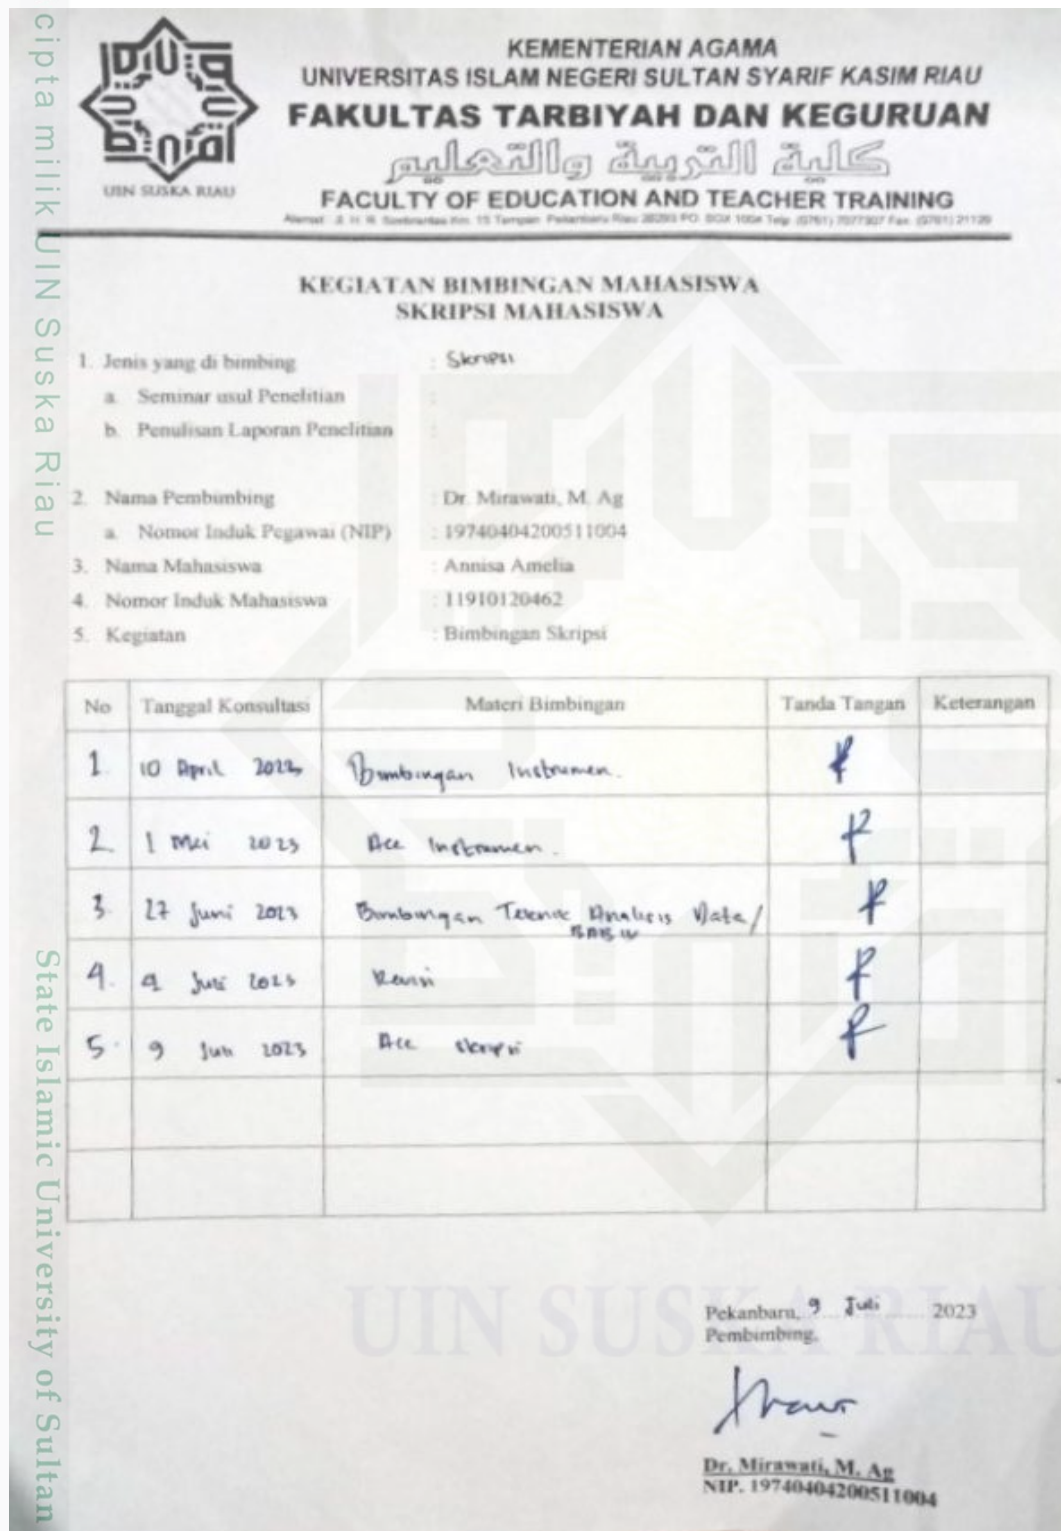 cipta milik UIN Suska Riau
UIN SUSKA RIAU
KEMENTERIAN AGAMA
UNIVERSITAS ISLAM NEGERI SULTAN SYARIF KASIM RIAU
FAKULTAS TARBIYAH DAN KEGURUAN
كلية التربية والتعليم
FACULTY OF EDUCATION AND TEACHER TRAINING
Alamat : Jl. H. R. Soebrantas Km. 15 Tampan Pekanbaru Riau 28293 PO. BOX 1004 Telp. (0761) 7077307 Fax. (0761) 21129
KEGIATAN BIMBINGAN MAHASISWA
SKRIPSI MAHASISWA
1. Jenis yang di bimbing : Skripsi
a. Seminar usul Penelitian :
b. Penulisan Laporan Penelitian :
2. Nama Pembimbing : Dr. Mirawati, M. Ag
a. Nomor Induk Pegawai (NIP) : 19740404200511004
3. Nama Mahasiswa : Annisa Amelia
4. Nomor Induk Mahasiswa : 11910120462
5. Kegiatan : Bimbingan Skripsi
No Tanggal Konsultasi Materi Bimbingan Tanda Tangan Keterangan
1. 10 April 2023 Bimbingan Instrumen.
2. 1 Mei 2023 Acc Instrumen.
3. 27 Juni 2023 Bimbingan Teknik Analisis Data/
BAB IV
4. 4 Juli 2023 Revisi
5. 9 Juli 2023 Acc skripsi
State Islamic University of Sultan
UIN SUSKA RIAU
Pekanbaru, 9 Juli 2023
Pembimbing,
Dr. Mirawati, M. Ag
NIP. 19740404200511004